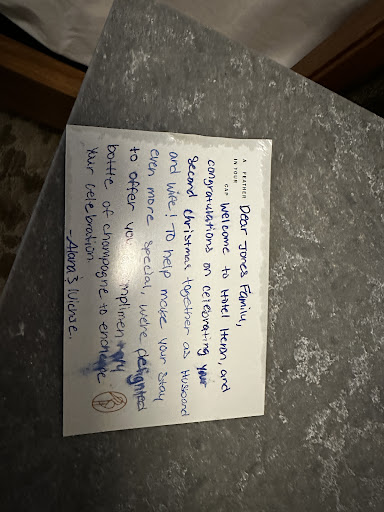 A FEATHER
IN YOUR
CAP
Dear Jones Family,
Welcome to Hotel Heron, and
congratulations on celebrating your
second christmas together as Husband
and Wife! To help make your stay
even more special, we're delighted
to offer you complimentary
bottle of champagne to enhance
your celebration.